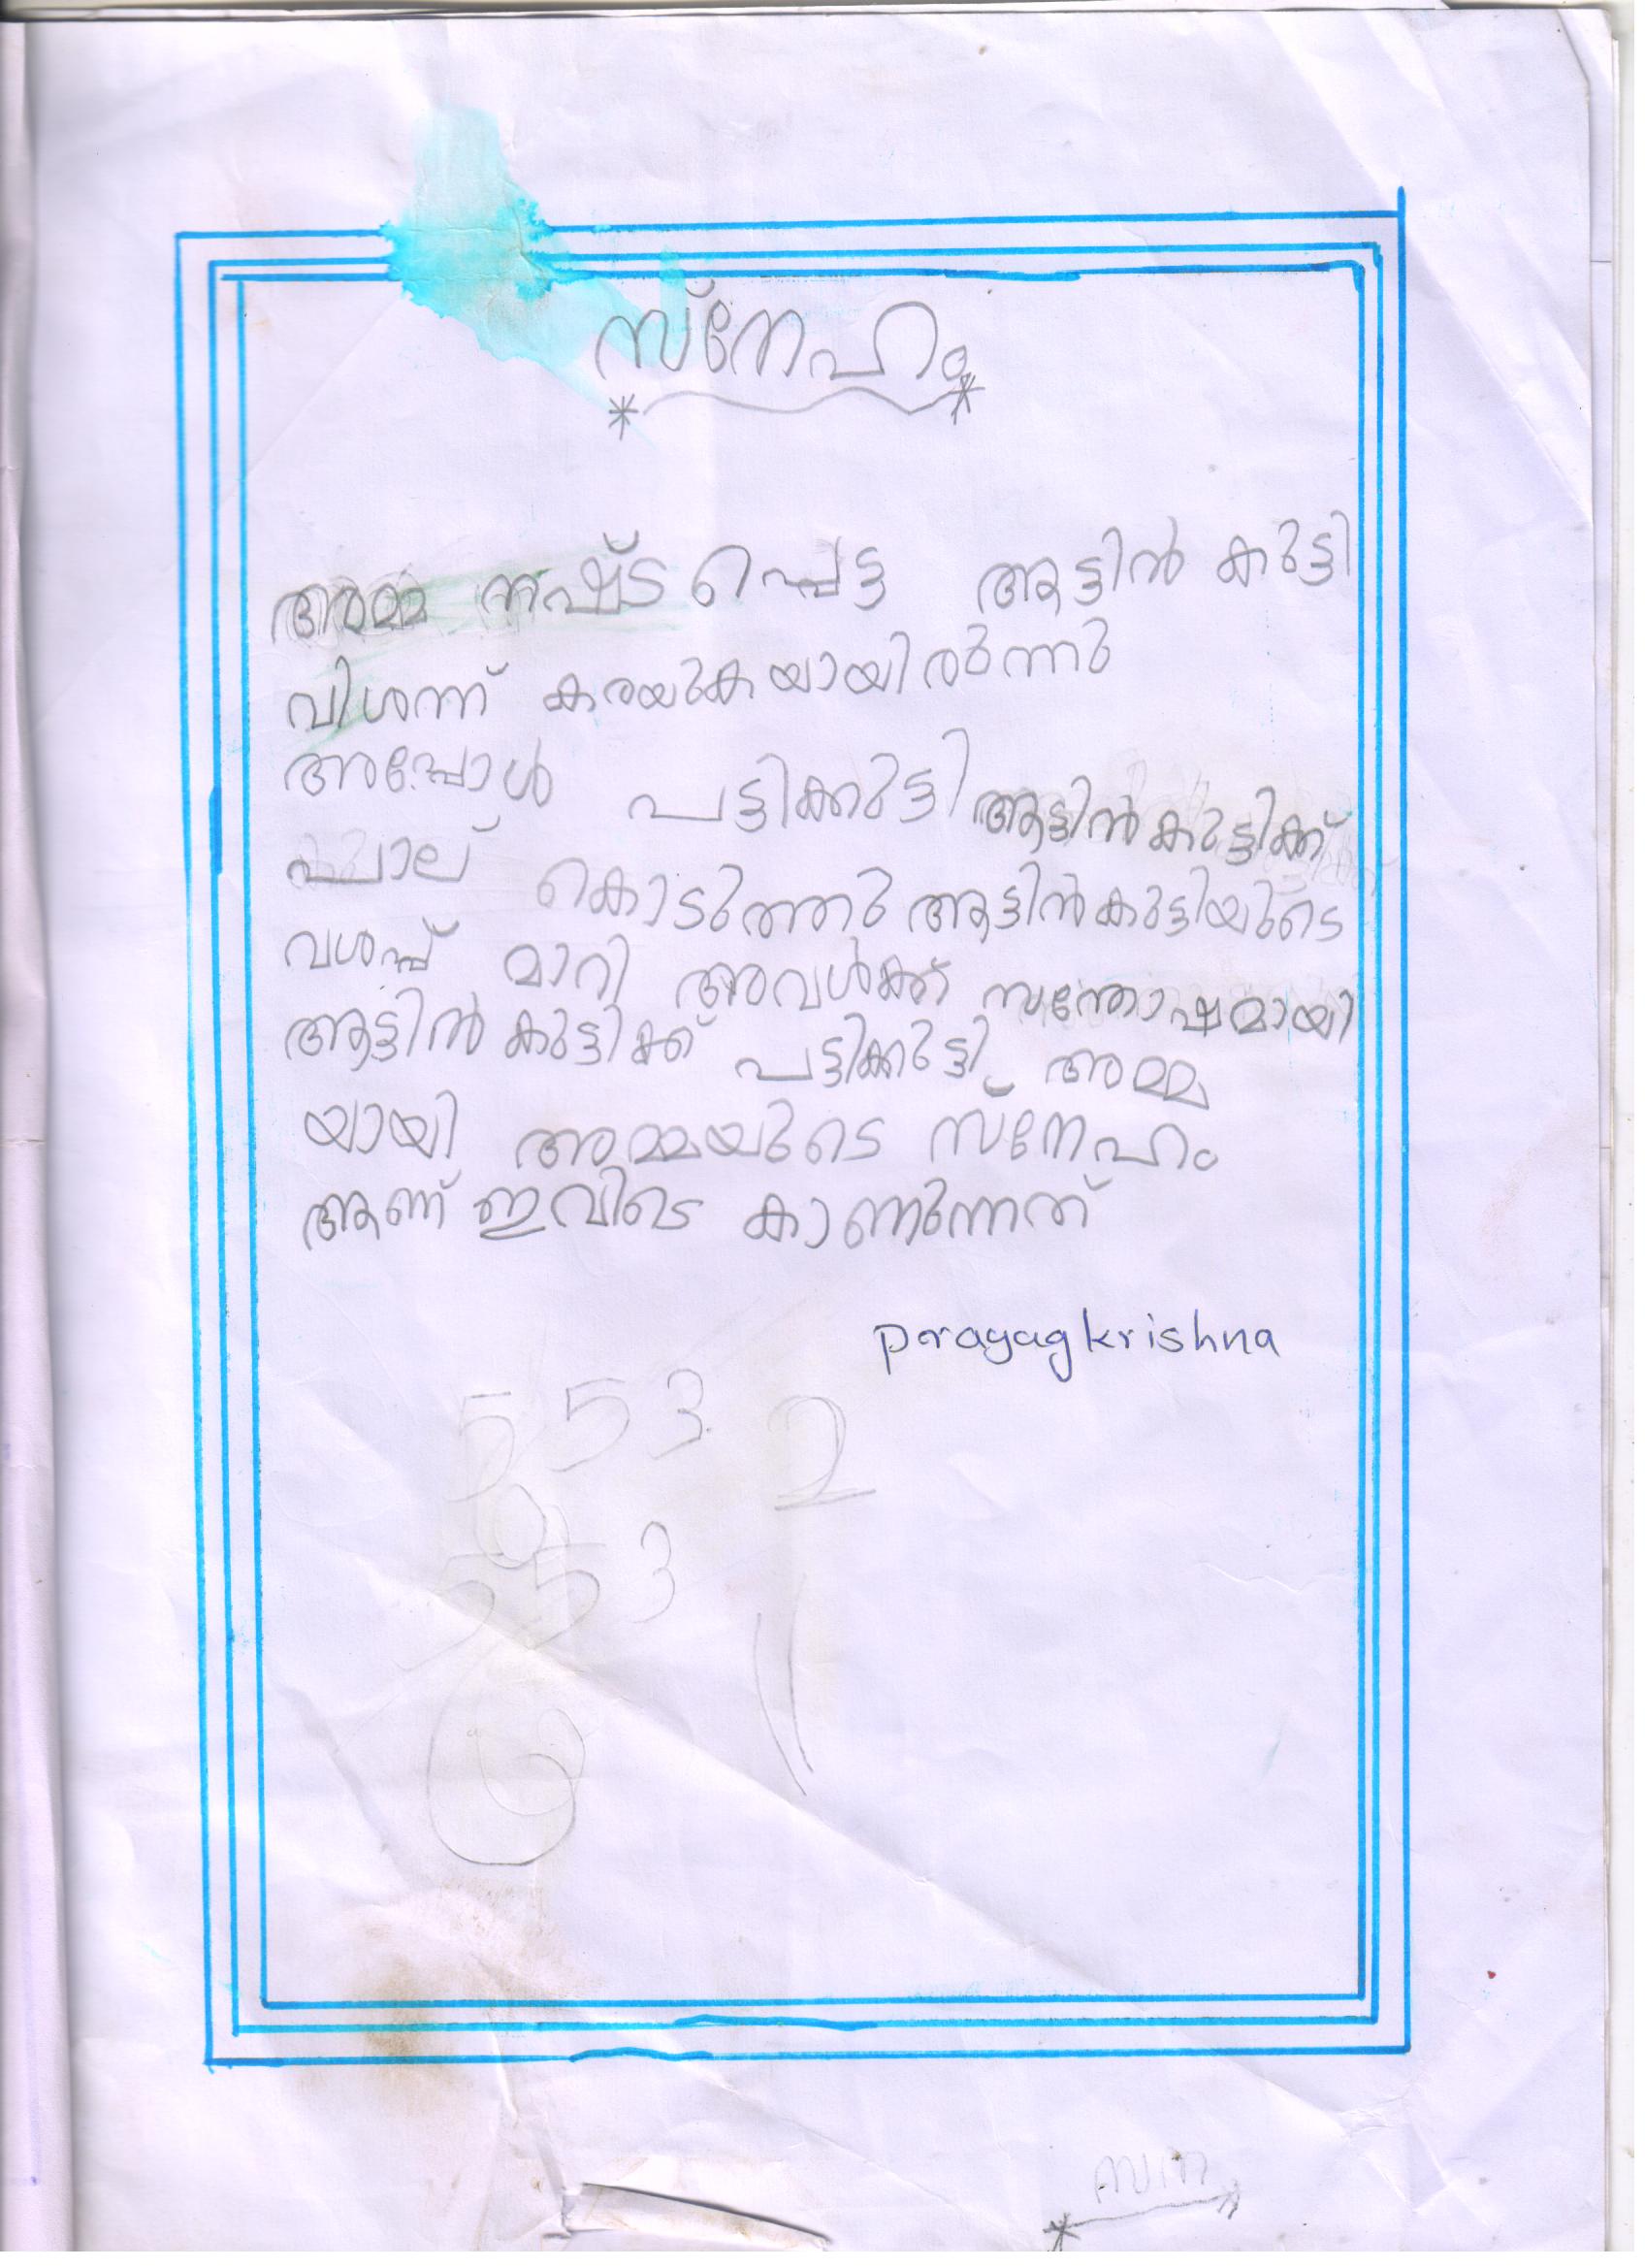 സ്നേഹം
അമ്മ നഷ്ട പ്പെട്ട ആട്ടിൻ കുട്ടി
വിശന്ന് കരയുകയായിരുന്നു
അപ്പോൾ പട്ടിക്കുട്ടി ആട്ടിൻകുട്ടിക്ക്
പാല് കൊടുത്തു ആട്ടിൻകുട്ടിയുടെ
വശപ്പ് മാറി അവൾക്ക് സന്തോഷമായി
ആട്ടിൻ കുട്ടിക്ക് പട്ടിക്കുട്ടി അമ്മ
യായി അമ്മയുടെ സ്നേഹം
ആണ് ഇവിടെ കാണുന്നത്
prayag krishna
553 2
553